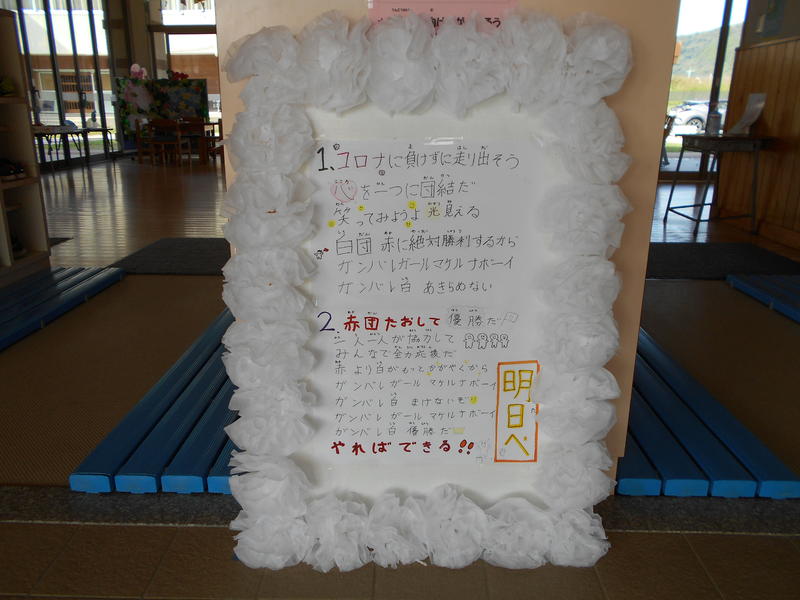 1. コロナに負けずに走り出そう
心を一つに団結だ
笑ってみようよ光見える
白団 赤に絶対勝利するから
ガンバレガールマケルナボーイ
ガンバレ白 あきらめない
2. 赤団たおして 優勝だ
一人一人が協力して
みんなで全力応援だ
赤より白がもっとかがやくから
ガンバレ ガール マケルナボーイ
ガンバレ 白 まけないぞ!!
ガンバレ ガール マケルナボーイ
ガンバレ 白 優勝だ
やればできる!!
明日へ